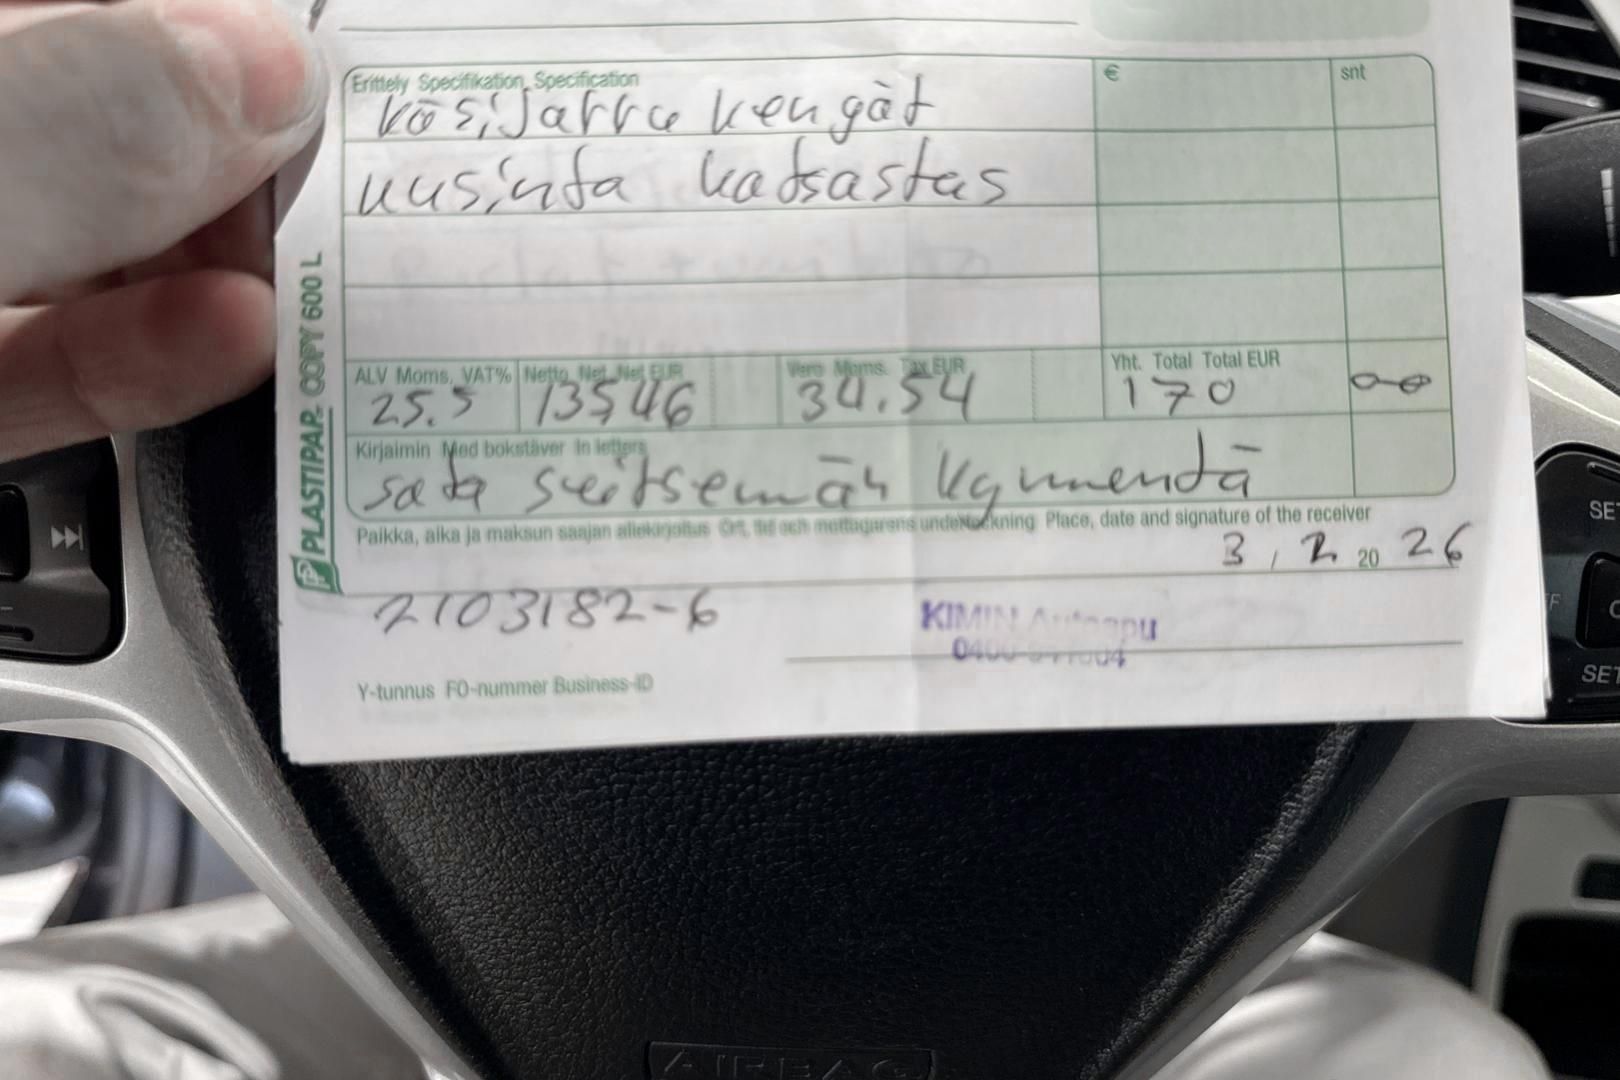 Erittely Specifikation Specification
€
snt
käsijarru kengät
uusinta katsastas
PLASTIPAP COPY 600 L
ALV Moms. VAT% Netto Net. Net EUR Vero Moms. Tax EUR Yht. Total Total EUR
25.5 135,46 34.54 170
Kirjaimin Med bokstäver In letters
sata seitsemän kymmentä
Paikka, aika ja maksun saajan allekirjoitus Ort, tid och mottagarens underteckning Place, date and signature of the receiver
3, 2 20 26
2103182-6
KIMIN Autoapu
0400
Y-tunnus FO-nummer Business-ID
SET
SET
AIRBAG